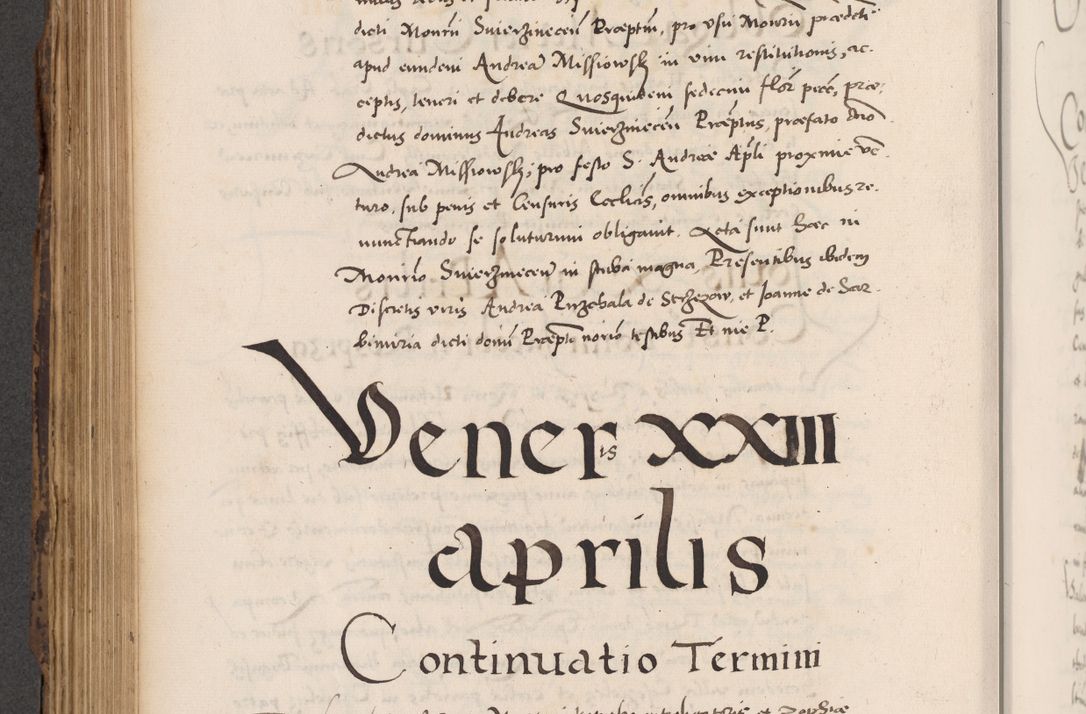 dicti Monrii Swierzinecen Præeptm, pro usu Monrii præedcti
apud eundem Andream Missiowsky in vim restitutionis, ac-
ceptis, teneri et debere Quosquidem sedecim flor pecc, præ-
dictus dominus Andreas Swierzinecen Præeptus, præfato dno
Andreæ Missiowsky, pro festo S. Andreæ Apli proxime ve-
turo, sub penis et Censuris Ecclias, omnibus exceptionibus re-
nunctiando se soluturum obligavit. Acta sunt hæc in
Monrio Swierzinecen in stuba magna, Presentibus ibidem
Discretis viris Andrea Przchala de et Joanne de Sar-
binuria dicti domi Præepti norio testibus Et me P.
Veneris XXIII
aprilis
Continuatio Termini
et Zophiæ